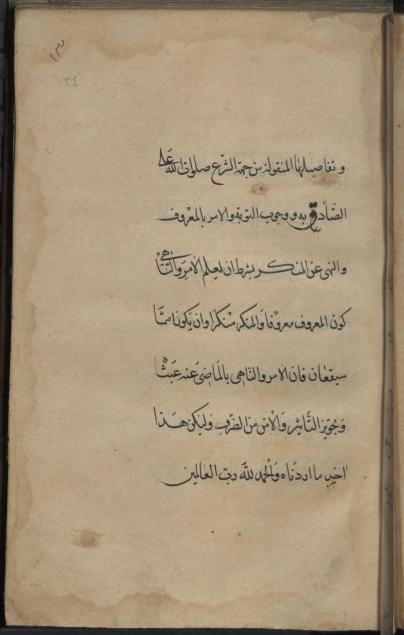 ١٣
٣٤
وتفاصيلها المنقولة من جهة الشرع صلوات الله على
الصَّادق به ووجوب التوبة والامر بالمعروف
والنهى عن المنكر بشرط ان يعلم الآمر والنَّاهى
كون المعروف معروفًا والمنكر منكرًا وان يكونا ممَّا
سيقعان فان الامر والناهى بالماضى عنه عبثٌ
وتجويز التَّاثير والامن من الضرر وليكن هذا
اخر ما اردناه والحمد لله رب العالمين